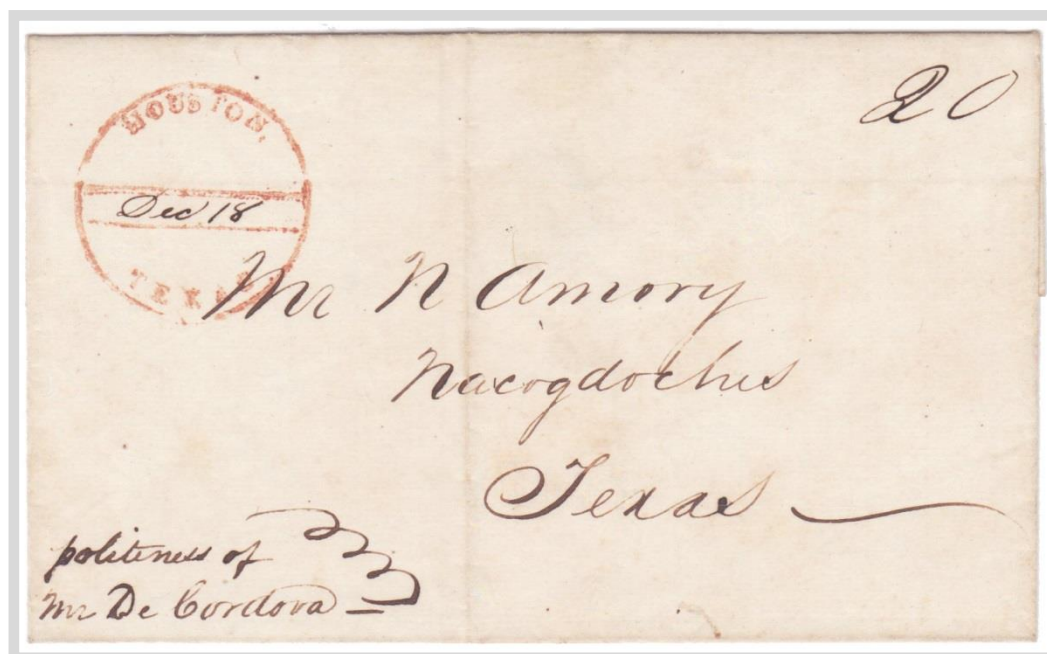 20
HOUSTON,
Dec 18
TEXAS
Mr N Amory
Nacogdoches
Texas
politeness of
Mr De Cordova